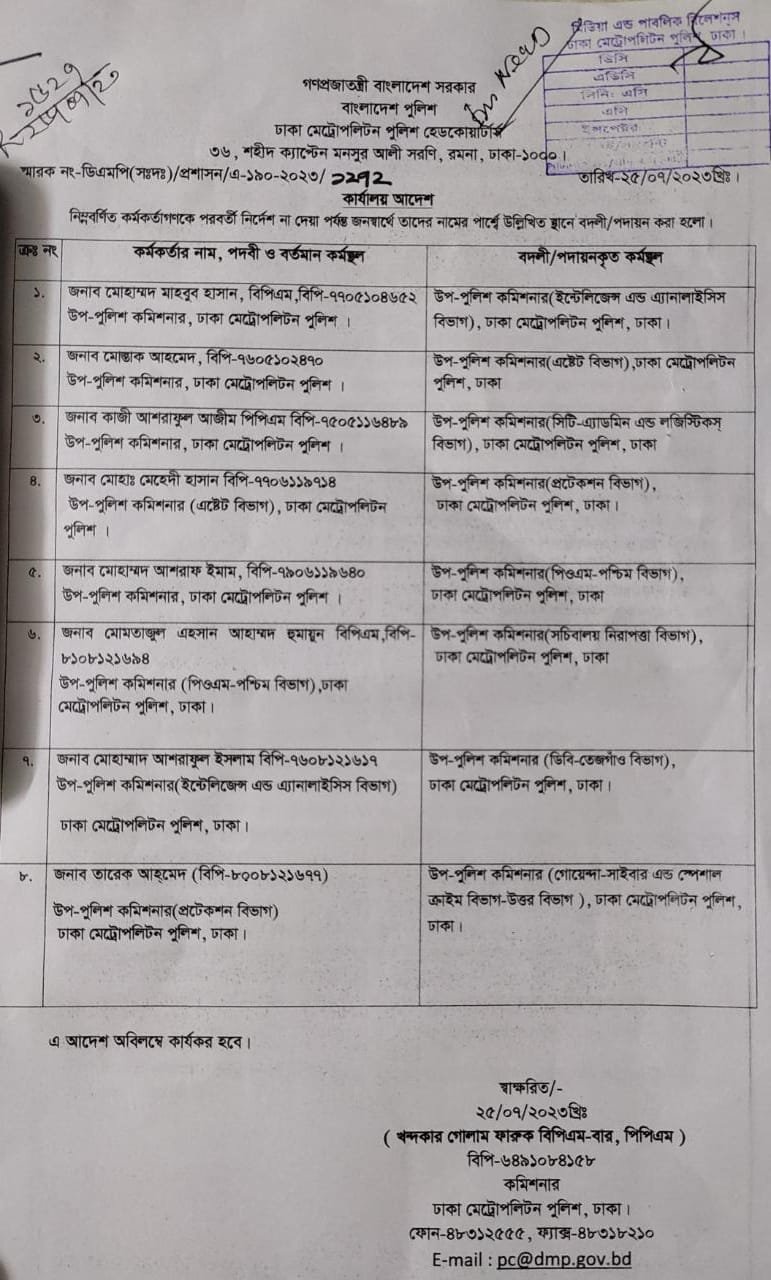 মিডিয়া এন্ড পাবলিক রিলেশনস
ঢাকা মেট্রোপলিটন পুলিশ, ঢাকা।
ডিসি
এডিসি
সিনিঃ এসি
এসি
ইন্সপেক্টর
গণপ্রজাতন্ত্রী বাংলাদেশ সরকার
বাংলাদেশ পুলিশ
ঢাকা মেট্রোপলিটন পুলিশ হেডকোয়ার্টার্স
৩৬, শহীদ ক্যাপ্টেন মনসুর আলী সরণি, রমনা, ঢাকা-১০০০।
স্মারক নং-ডিএমপি(সঃদঃ)/প্রশাসন/এ-১৯০-২০২৩/ ১২৭২
তারিখ-২৫/০৭/২০২৩খ্রিঃ।
কার্যালয় আদেশ
নিম্নবর্ণিত কর্মকর্তাগণকে পরবর্তী নির্দেশ না দেয়া পর্যন্ত জনস্বার্থে তাদের নামের পার্শ্বে উল্লিখিত স্থানে বদলী/পদায়ন করা হলো।
ক্রঃ নং
কর্মকর্তার নাম, পদবী ও বর্তমান কর্মস্থল
বদলী/পদায়নকৃত কর্মস্থল
১.
জনাব মোহাম্মদ মাহবুব হাসান, বিপিএম,বিপি-৭৭০৫১০৪৬৫২
উপ-পুলিশ কমিশনার, ঢাকা মেট্রোপলিটন পুলিশ ।
উপ-পুলিশ কমিশনার(ইন্টেলিজেন্স এন্ড এ্যানালাইসিস
বিভাগ), ঢাকা মেট্রোপলিটন পুলিশ, ঢাকা।
২.
জনাব মোস্তাক আহমেদ, বিপি-৭৬০৫১০২৪৭০
উপ-পুলিশ কমিশনার, ঢাকা মেট্রোপলিটন পুলিশ ।
উপ-পুলিশ কমিশনার(এস্টেট বিভাগ),ঢাকা মেট্রোপলিটন
পুলিশ, ঢাকা
৩.
জনাব কাজী আশরাফুল আজীম পিপিএম বিপি-৭৫০৫১১৬৪৮৯
উপ-পুলিশ কমিশনার, ঢাকা মেট্রোপলিটন পুলিশ ।
উপ-পুলিশ কমিশনার(সিটি-এ্যাডমিন এন্ড লজিস্টিকস্
বিভাগ), ঢাকা মেট্রোপলিটন পুলিশ, ঢাকা
৪.
জনাব মোহাঃ মেহেদী হাসান বিপি-৭৭০৬১১৯৭১৪
উপ-পুলিশ কমিশনার (এস্টেট বিভাগ), ঢাকা মেট্রোপলিটন
পুলিশ ।
উপ-পুলিশ কমিশনার(প্রটেকশন বিভাগ),
ঢাকা মেট্রোপলিটন পুলিশ, ঢাকা।
৫.
জনাব মোহাম্মদ আশরাফ ইমাম, বিপি-৭৯০৬১১৯৬৪০
উপ-পুলিশ কমিশনার, ঢাকা মেট্রোপলিটন পুলিশ ।
উপ-পুলিশ কমিশনার(পিওএম-পশ্চিম বিভাগ),
ঢাকা মেট্রোপলিটন পুলিশ, ঢাকা
৬.
জনাব মোমতাজুল এহসান আহাম্মদ হুমায়ুন বিপিএম,বিপি-
৮১০৮১২১৬৯৪
উপ-পুলিশ কমিশনার (পিওএম-পশ্চিম বিভাগ),ঢাকা
মেট্রোপলিটন পুলিশ, ঢাকা।
উপ-পুলিশ কমিশনার(সচিবালয় নিরাপত্তা বিভাগ),
ঢাকা মেট্রোপলিটন পুলিশ, ঢাকা
৭.
জনাব মোহাম্মাদ আশরাফুল ইসলাম বিপি-৭৬০৮১২১৬১৭
উপ-পুলিশ কমিশনার(ইন্টেলিজেন্স এন্ড এ্যানালাইসিস বিভাগ)
ঢাকা মেট্রোপলিটন পুলিশ, ঢাকা।
উপ-পুলিশ কমিশনার (ডিবি-তেজগাঁও বিভাগ),
ঢাকা মেট্রোপলিটন পুলিশ, ঢাকা।
৮.
জনাব তারেক আহমেদ (বিপি-৮০০৮১২১৬৭৭)
উপ-পুলিশ কমিশনার(প্রটেকশন বিভাগ)
ঢাকা মেট্রোপলিটন পুলিশ, ঢাকা।
উপ-পুলিশ কমিশনার (গোয়েন্দা-সাইবার এন্ড স্পেশাল
ক্রাইম বিভাগ-উত্তর বিভাগ ), ঢাকা মেট্রোপলিটন পুলিশ,
ঢাকা।
এ আদেশ অবিলম্বে কার্যকর হবে।
স্বাক্ষরিত/-
২৫/০৭/২০২৩খ্রিঃ
( খন্দকার গোলাম ফারুক বিপিএম-বার, পিপিএম )
বিপি-৬৪৯১০৮৪১৫৮
কমিশনার
ঢাকা মেট্রোপলিটন পুলিশ, ঢাকা।
ফোন-৪৮৩১২৫৫৫, ফ্যাক্স-৪৮৩১৮২১০
E-mail : pc@dmp.gov.bd